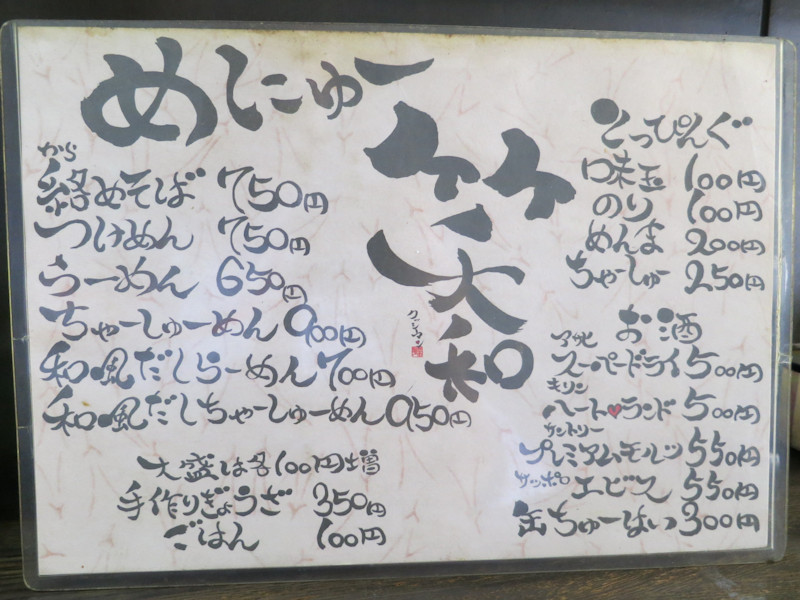 めにゅー
から
絡めそば 750円
つけめん 750円
らーめん 650円
ちゃーしゅーめん 900円
和風だしらーめん 700円
和風だしちゃーしゅーめん 950円
大盛は各100円増
手作りぎょうざ 350円
ごはん 100円
笑
大和
●とっぴんぐ
味玉 100円
のり 100円
めんま 200円
ちゃーしゅー 250円
お酒
アサヒ
スーパードライ 500円
キリン
ハート♥ランド 500円
サントリー
プレミアムモルツ 550円
サッポロ
エビス 550円
缶ちゅーはい 300円